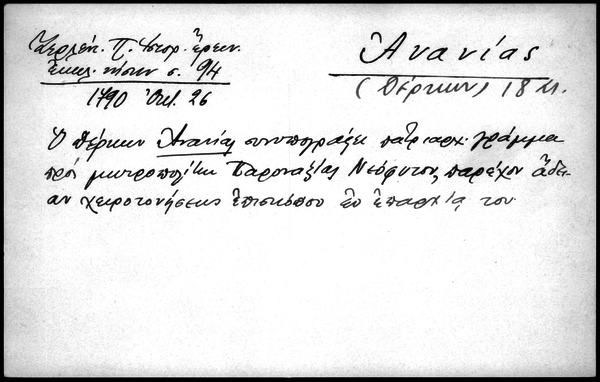 Ζερλέντ. Π. Ἱστορ. ἔρευν.
ἐκκλ. νήσων σ. 94
1790 Ὀκτ. 26
Ἀνανίας
(Δέρκων) 18 Μ.
Ὁ Δέρκων Ἀνανίας συνυπογράφει πατριαρχ. γράμμα
πρός μητροπολίτην Παροναξίας Νεόφυτον, παρέχον ἄδει-
αν χειροτονήσεως ἐπισκόπου ἐν ἐπαρχίᾳ του.